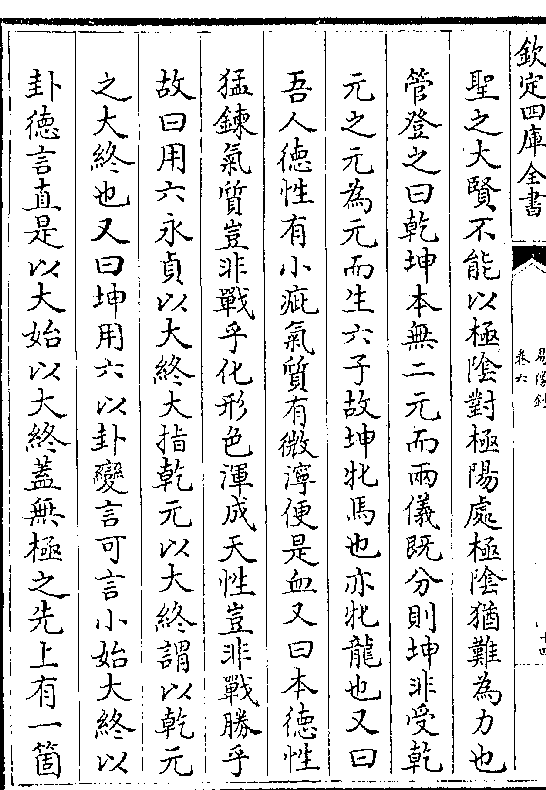 欽定四庫全書
卷六
聖之大賢不能以極陰對極陽處極陰猶難為力也
管登之曰乾坤本無二元而兩儀既分則坤非受乾
元之元為元而生六子故坤牝馬也亦牝龍也又曰
吾人德性有小疵氣質有微濘便是血又曰本德性
猛鍊氣質豈非戰乎化形色渾成天性豈非戰勝乎
故曰用六永貞以大終大指乾元以大終謂以乾元
之大終也又曰坤用六以卦變言可言小始大終以
卦德言直是以大始以大終蓋無極之先上有一箇